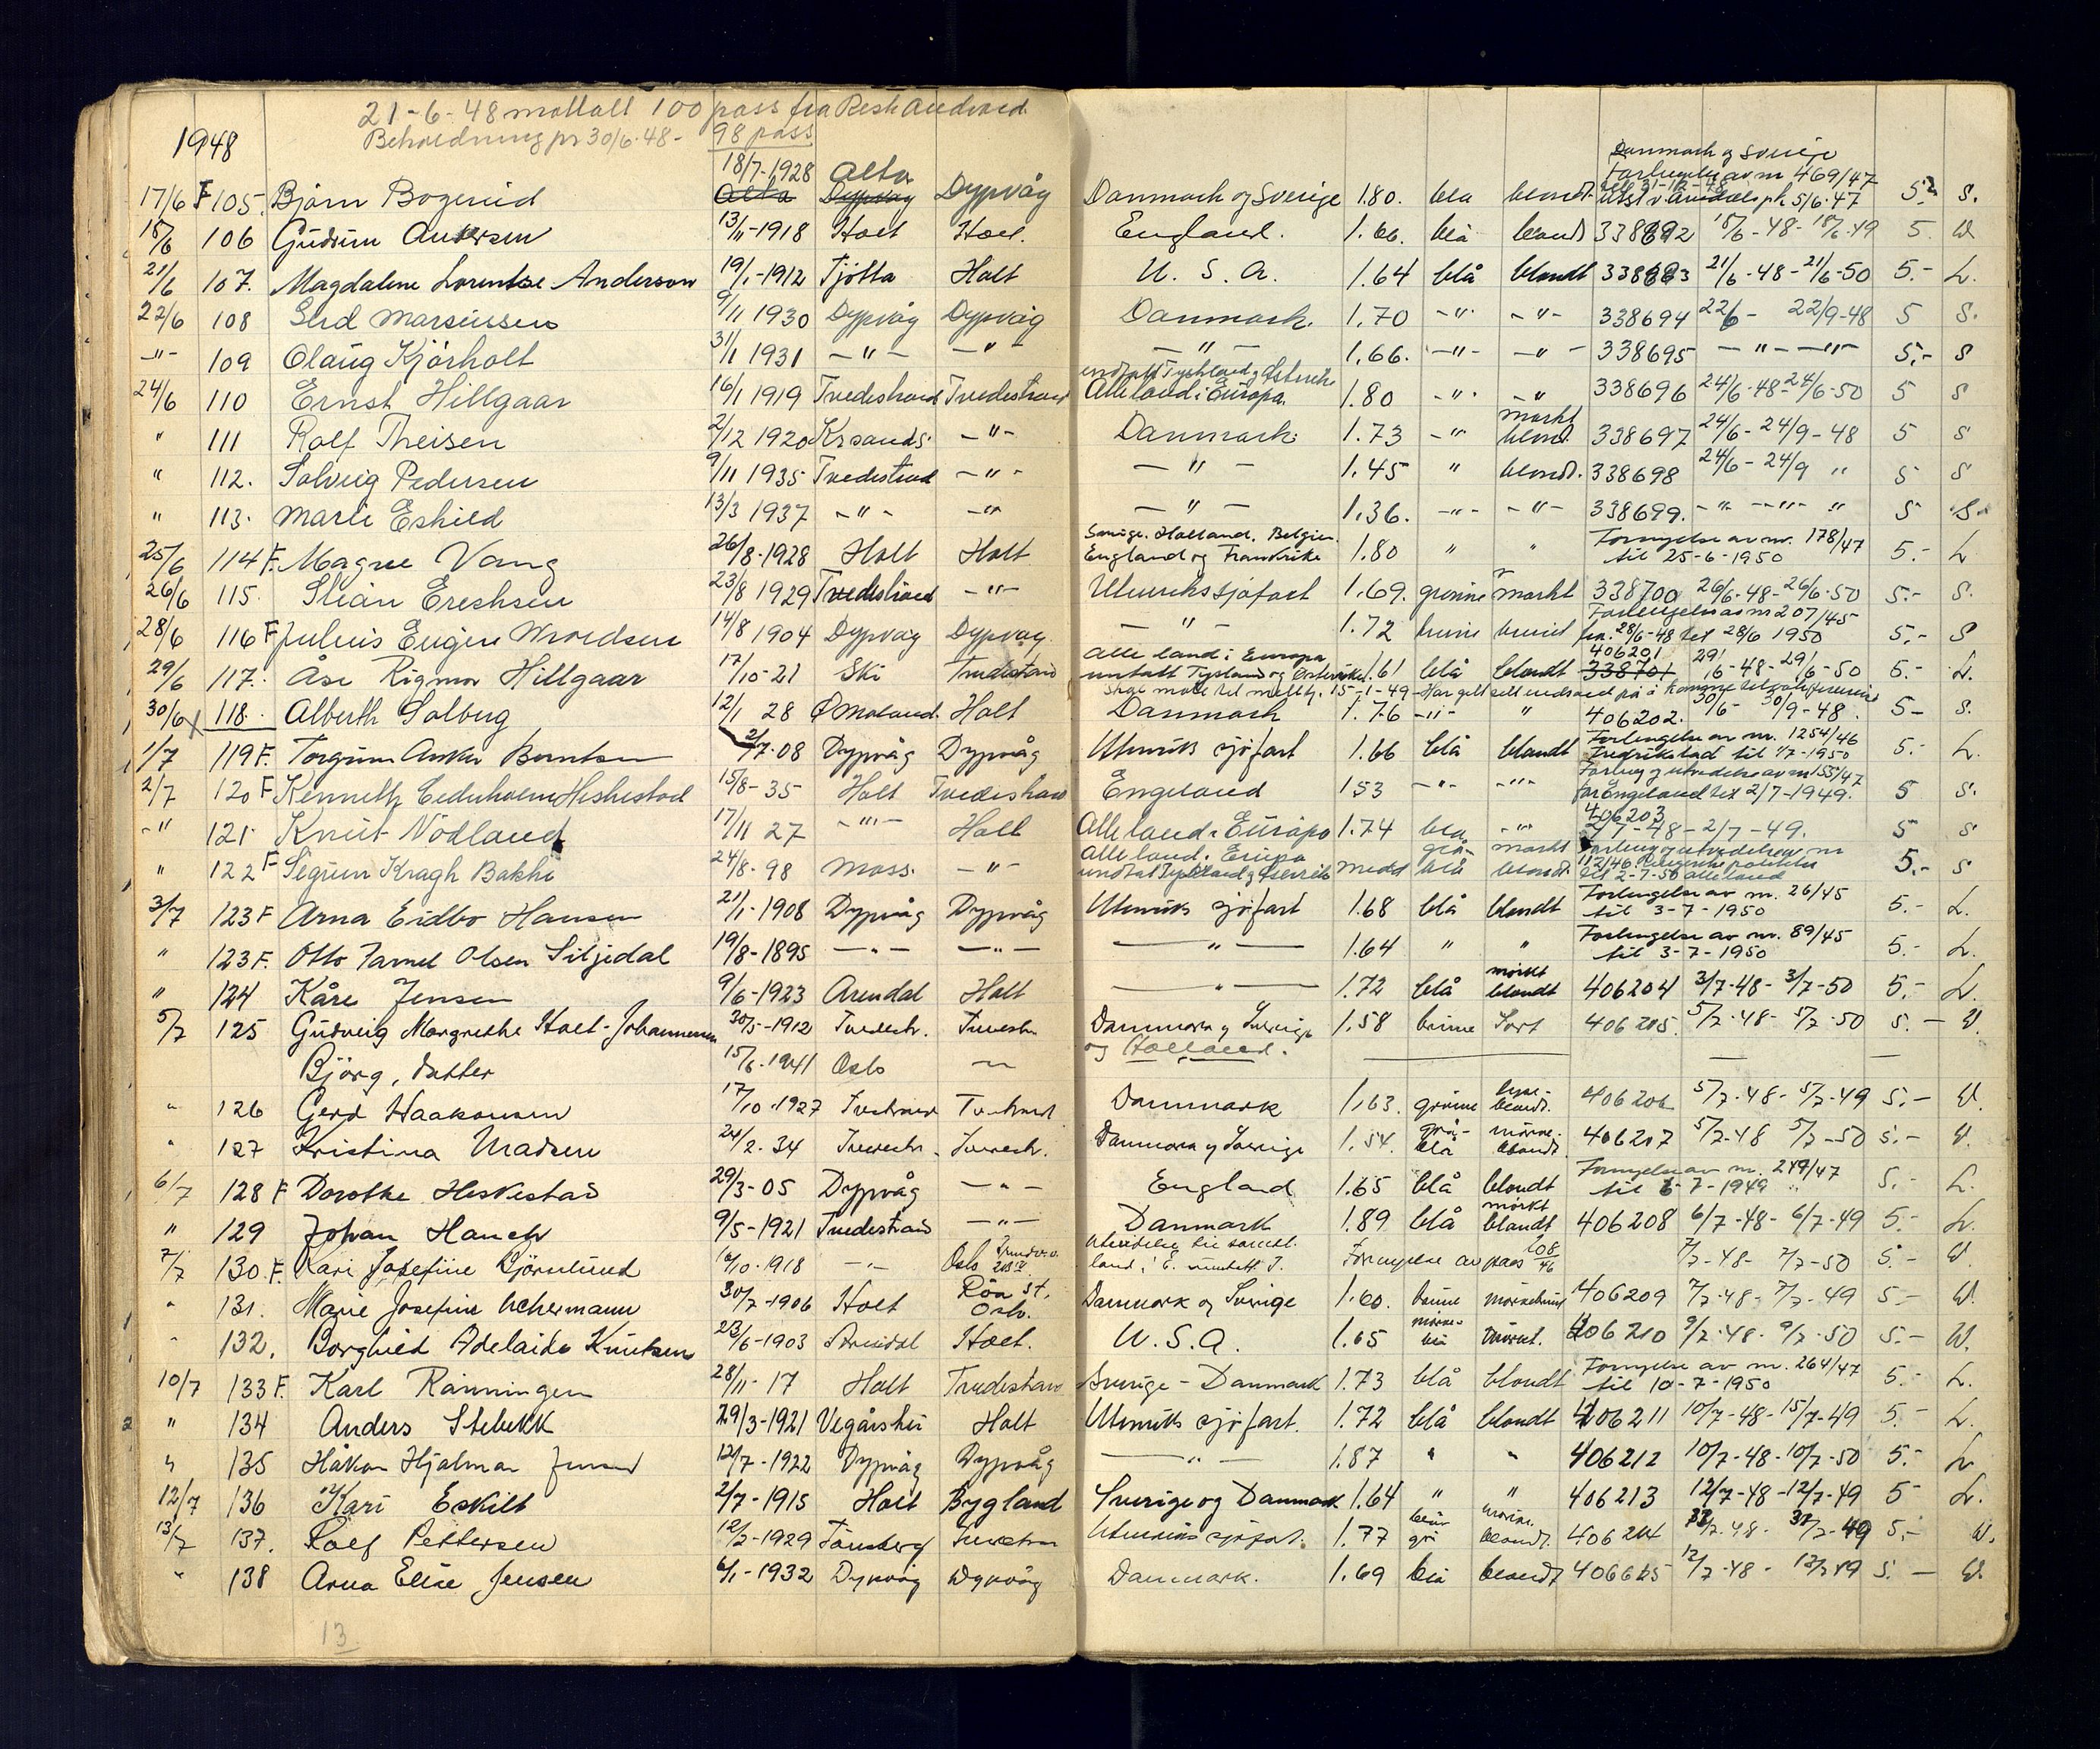 21-6-48 mottatt 100 pass fra
Beholdning pr 30/6-48- 98 pass
1948
17/6 F 105. Bjørn 18/7-1928 Alta Dypvåg Danmark og Sverige 1.80. blå blond. Danmark og Sverige av nr 469/47 5.- S.
18/6 106 Gudrun Andersen 13/11-1918 Holt Holt. England. 1.66. blå blond 338692 18/6-48-18/6-49 5. W
21/6 107. Magdalene Lorentse Anderson 19/1-1912 Tjøtta Holt U. S. A. 1.64 blå blondt 338693 21/6-48-21/6-50 5.- L.
22/6 108 Marcussen 9/11 1930 Dypvåg Dypvåg Danmark. 1.70 -"- -"- 338694 22/6- 22/9-48 5 S.
-"- 109 Olaug Kjørholt 31/1 1931 -"- -"- -"- 1.66. -"- -"- 338695 -"- -"- 5.- S
24/6 110 Ernst Hillgaar 16/1 1919 Tvedestrand Tvedestrand Alle land i Europa. undtatt Tyskland og Østerrike 1.80 -"- -"- 338696 24/6-48-24/6-50 5 S
" 111 Rolf Theisen 2/12 1920 Krsands. -"- Danmark. 1.73 -"- mørkt blond. 338697 24/6-24/9-48 5 S
" 112. Solveig Pedersen 9/11 1935 Tvedestrand -"- -"- 1.45 " blond. 338698 24/6-24/9 " 5 S
" 113. Marli Eskild 13/3 1937 -"- -"- -"- 1.36. -"- -"- 338699. -"- -"- " 5 S.
25/6 114 F. Magne Vang 26/8-1928 Holt Holt Sverige. Holland. Belgien England og Frankrike 1.80 " " Fornyelse av nr. 178/47 til 25-6-1950 5.- L
26/6 115. Stian 23/8 1929 Tvedestrand -"- Utenriks sjøfart 1.69. grønne mørkt 338700 26/6-48-26/6-50 5.- S.
28/6 116 F Julius Eugen 14/8 1904 Dypvåg Dypvåg. -"- 1.72 brune brunt Forlengelse av nr 207/45 fra. 28/6-48 til 28/6 1950 5.- S
29/6 117. Åse Rigmor Hillgaar 17/10-21 Ski Tvedestrand Alle land i Europa untatt Tyskland og Østerrike 1.61 blå blondt 406201 338701 29/6-48-29/6-50 5.- L.
30/6 x 118. Alberth Solberg 12/1 28 Holt Danmark 1.76 -"- " 406202. 30/6- 30/9-48. 5- S.
1/7 119 F. Torgrim Anker Berntsen 2/7-08 Dypvåg Dypvåg Utenriks sjøfart 1.66 blå blondt Forlengelse av nr. 1254/46 Fredrikstad til 1/7-1950 5.- L.
2/7 120 F Kenneth Heskestad 15/8-35 Holt Tvedestrand England 153 -"- -"- Forleng og utvidelse av nr 155/47 for England til 2/7-1949. 5 S.
-"- 121. Knut Nødland 17/11 27 -"- Holt Alle land i Europa 1.74 blå -"- 406203 2/7-48-2/7-49. 5 S
" 122 F Sigrun Kragh Bakke 24/8-98 Moss. -"- Alle land i Europa undtat Tyskland og Østerrike medd grå-blå mørkt blond. 112/46 til 2-7-50 alle land 5.- S
3/7 123 F Arna Eidbo Hansen 21/1-1908 Dypvåg Dypvåg Utenriks sjøfart 1.68 blå blondt Forlengelse av nr. 26/45 til 3-7-1950 5.- L.
" 123 F. Otto Olsen Siljedal 19/8-1895 -"- -"- -"- 1.64 " " Forlengelse av nr. 89/45 til 3-7-1950 5.- L.
" 124 Kåre Jensen 9/6-1923 Arendal Holt -"- 1.72 blå mørkt blondt 406204 3/7-48-3/7-50 5.- L.
5/7 125 Gudveig Margrethe Holt-Johannessen 30/5-1912 Tvedestr. Tvedestr. Danmark og Sverige og Holland. 1.58 brune Sort 406205. 5/7-48- 5/7-50 5.- W.
Björg, datter 15/6-1941 Oslo
" 126 Gerd Haakonsen 17/10-1927 Tvedestrand Tvedestrand Danmark 1.63. grønne lyse-blondt. 406206 5/7-48-5/7-49 5.- W.
" 127 Kristina Madsen 24/2-34 Tvedestr. Tvedestr. Danmark og Sverige 1.54. grå-blå mørke-blondt. 406207 5/7-48 5/7-50 5.- W.
6/7 128 F Dorothe Heskestad 29/3-05 Dypvåg -"- England 1.65 blå blondt Fornyelse av nr. 249/47 til 6-7-1949 5.- L.
" 129 Johan Hauch 9/5-1921 Tvedestrand -"- Danmark 1.89 blå mørkt blondt 406208 6/7-48-6/7-49 5.- L.
7/7 130. F. Kari Josefine Björnlund 16/10-1918 -"- Oslo Utvidelse til samtl. land i E. unntatt T. Fornyelse av pass 108/46 7/7-48- 7/7-50 5.- W.
" 131. Marie Josefine Achermann 30/7-1906 Holt Röa st. Oslo. Danmark og Sverige 1.60. brune mørkebrunt 406209 7/7-48-7/7-49 5.- W.
" 132. Borghild Adelaide Knutsen 23/6-1903 Arendal Holt. U.S.A. 1.65 mørke-blå mørkt. 406210 9/7-48-9/7-50 5.- W.
10/7 133 F. Karl Rønningen 28/11-17 Holt Tvedestrand Sverige - Danmark 1.73 blå blondt Fornyelse av nr. 264/47 til 10-7-1950 5.- L.
" 134 Anders Stebekk 29/3-1921 Vegårshei Holt Utenriks sjøfart. 1.72 blå blondt 406211 10/7-48-15/7-49 5.- L.
" 135 Håkon Hjalmar Jensen 12/7-1922 Dypvåg Dypvåg -"- 1.87 " " 406212 10/7-48-10/7-50 5.- L
12/7 136 Kari Eskilt 2/7-1915 Holt Bygland Sverige og Danmark 1.64 " " 406213 12/7-48-12/7-49 5- L.
13/7 137. Rolf Pettersen 12/2-1929 Tønsberg Tvedestr. Utenriks sjøfart. 1.77 blå grå mørke. blondt. 406214 5.- W.
" 138 Arna Elise Jensen 6/1-1932 Dypvåg Dypvåg Danmark. 1.69 blå blondt 5.- W.
13